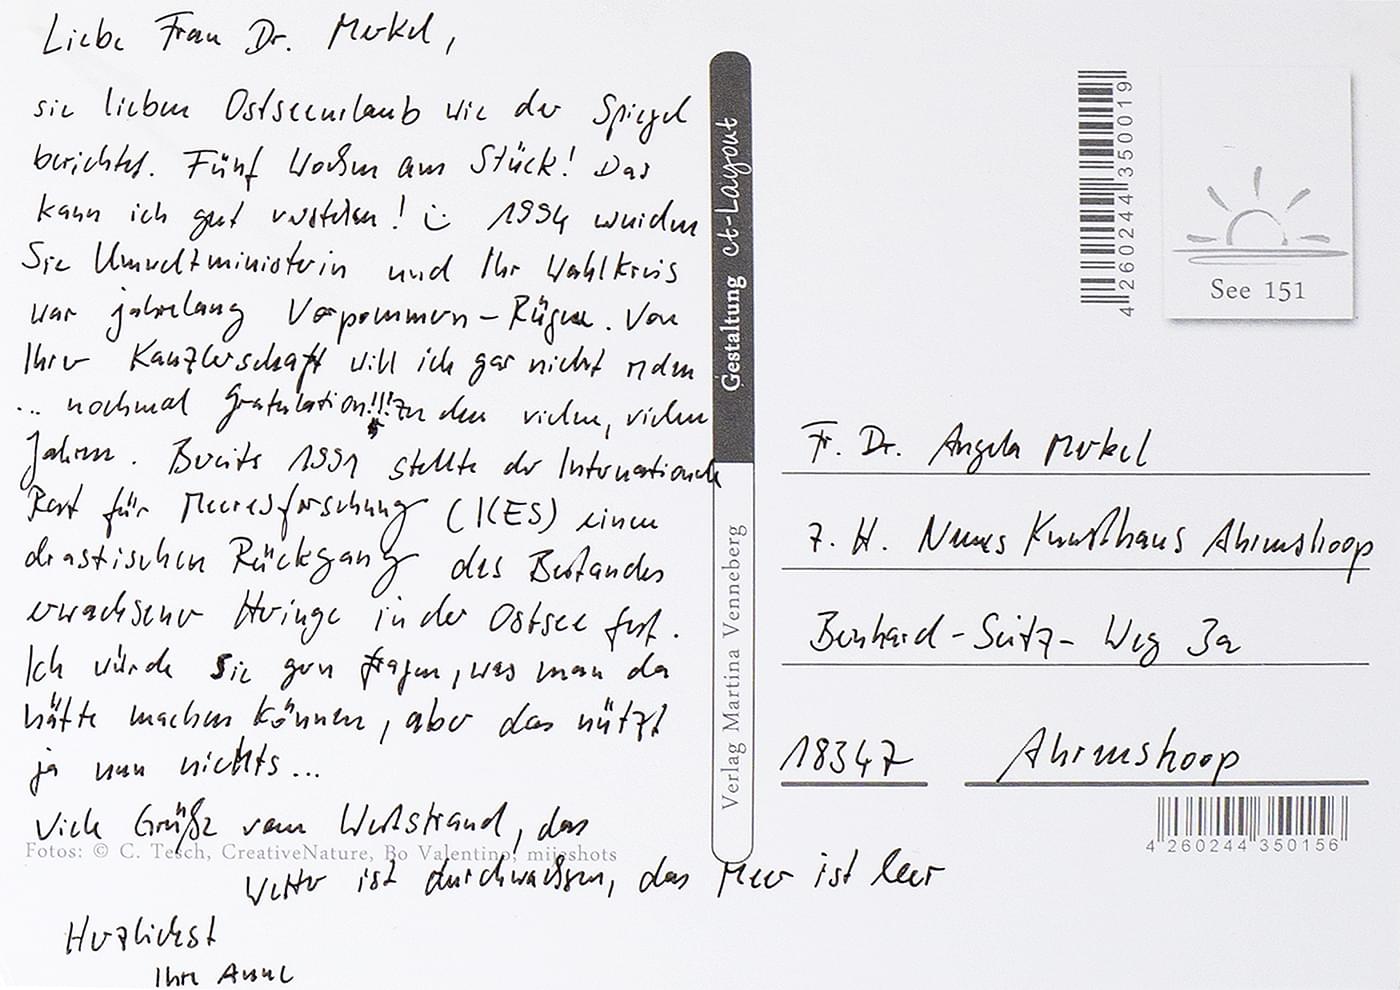 Liebe Frau Dr. Merkel,
sie lieben Ostseeurlaub wie der Spiegel
berichtet. Fünf Wochen am Stück! Das
kann ich gut verstehen! 1994 wurden
Sie Umweltministerin und Ihr Wahlkreis
war jahrelang Vorpommern-Rügen. Von
Ihrer Kanzlerschaft will ich gar nicht reden
... nochmal Gratulation!!! Zu den vielen, vielen
Jahren. Bereits 1991 stellte der Internationale
Rat für Meeresforschung (ICES) einen
drastischen Rückgang des Bestandes
erwachsener Heringe in der Ostsee fest.
Ich würde Sie gern fragen, was man da
hätte machen können, aber das nützt
ja nun nichts...
Viele Grüße vom Weststrand, das
Wetter ist durchwachsen, das Meer ist leer
Herzlichst
Ihre Anne
Fotos: © C. Tesch, CreativeNature, Bo Valentino, mijeshots
Gestaltung ct-Layout
Verlag Martina Venneberg
4 260244 350019
See 151
Fr. Dr. Angela Merkel
z. H. Neues Kunsthaus Ahrenshoop
Bernhard-Seitz-Weg 3a
18347 Ahrenshoop
4 260244 350156